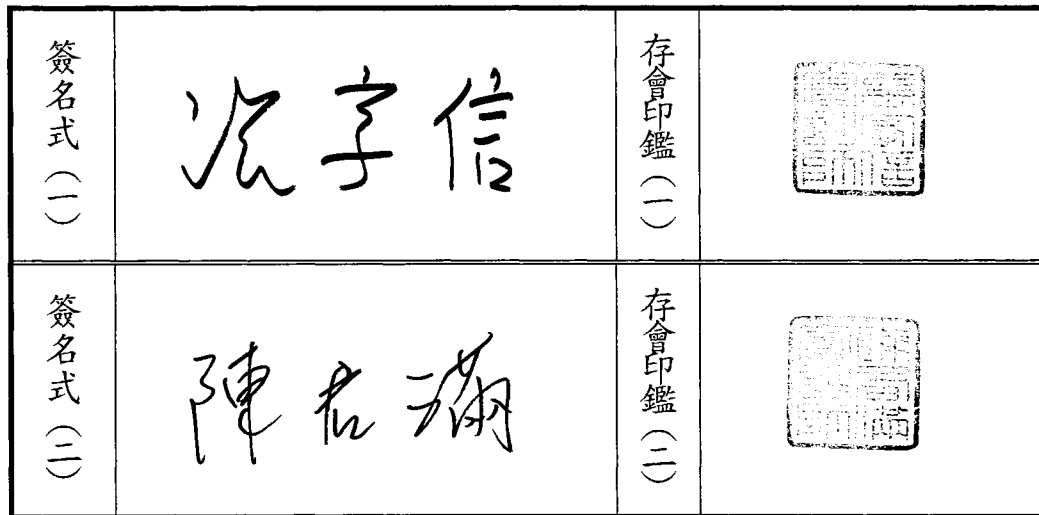 簽名式（一）
字信
存會印鑑（一）
簽名式（二）
陳君滿
存會印鑑（二）